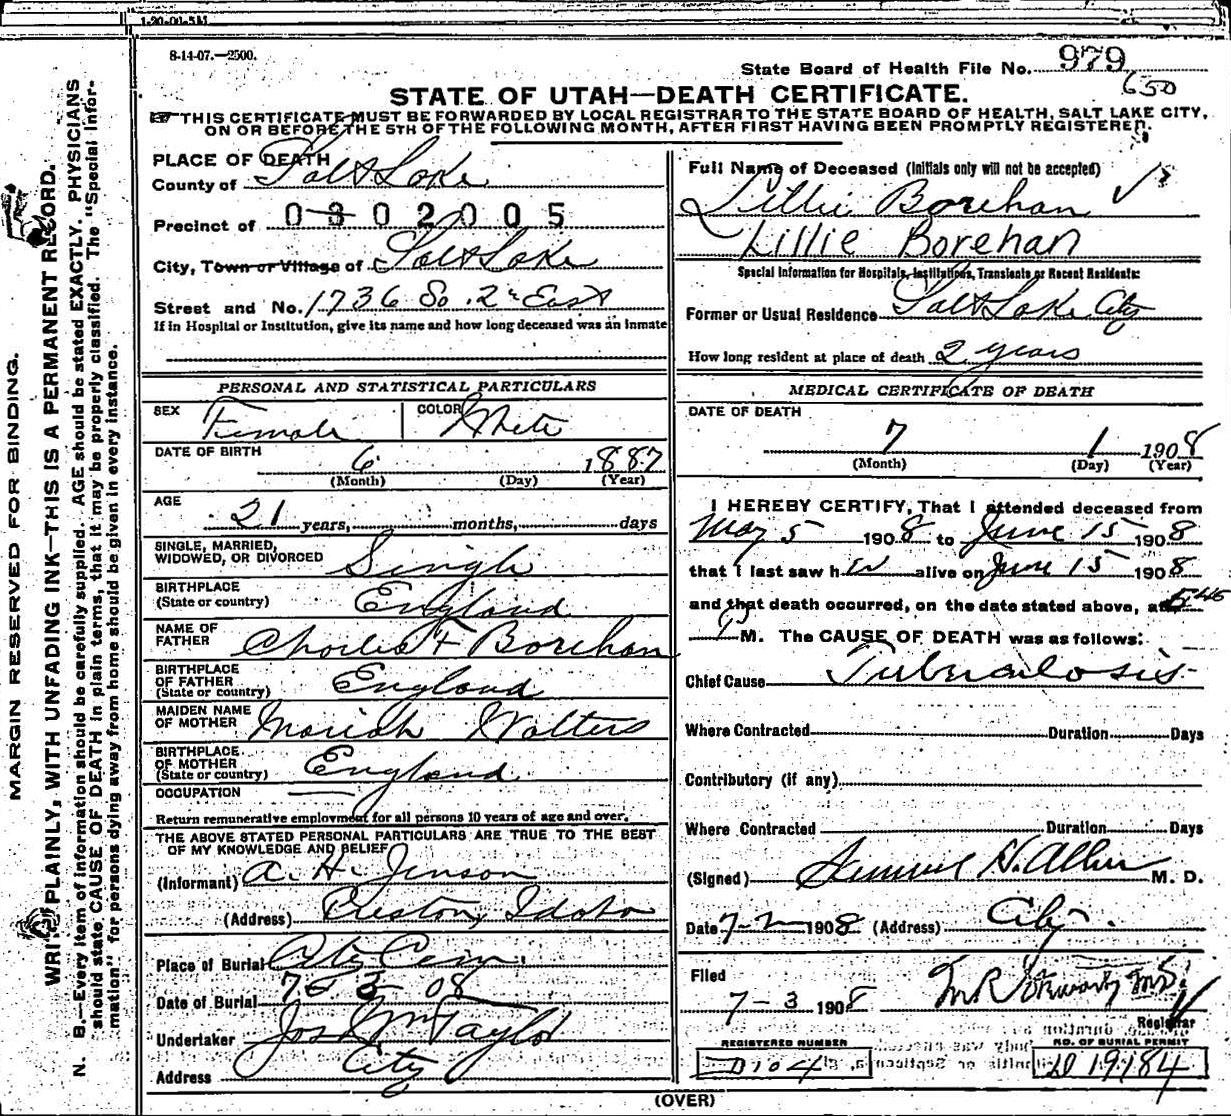 1-20-00-5M
8-14-07.—2500.
State Board of Health File No. 979
650
STATE OF UTAH—DEATH CERTIFICATE.
THIS CERTIFICATE MUST BE FORWARDED BY LOCAL REGISTRAR TO THE STATE BOARD OF HEALTH, SALT LAKE CITY,
ON OR BEFORE THE 5TH OF THE FOLLOWING MONTH, AFTER FIRST HAVING BEEN PROMPTLY REGISTERED.
MARGIN RESERVED FOR BINDING.
WRITE PLAINLY, WITH UNFADING INK—THIS IS A PERMANENT RECORD.
N. B.—Every item of information should be carefully supplied. AGE should be stated EXACTLY. PHYSICIANS
should state CAUSE OF DEATH in plain terms, that it may be properly classified. The "Special Infor-
mation" for persons dying away from home should be given in every instance.
PLACE OF DEATH
County of Salt Lake
Precinct of 0302005
City, Town or Village of Salt Lake
Street and No. 1736 So. 2nd East
If in Hospital or Institution, give its name and how long deceased was an inmate
PERSONAL AND STATISTICAL PARTICULARS
SEX Female COLOR White
DATE OF BIRTH 6 1887
(Month) (Day) (Year)
AGE
21 years, months, days
SINGLE, MARRIED,
WIDOWED, OR DIVORCED Single
BIRTHPLACE
(State or country) England
NAME OF
FATHER Charles F Borehan
BIRTHPLACE
OF FATHER
(State or country) England
MAIDEN NAME
OF MOTHER Mariah Walters
BIRTHPLACE
OF MOTHER
(State or country) England
OCCUPATION
Return remunerative employment for all persons 10 years of age and over.
THE ABOVE STATED PERSONAL PARTICULARS ARE TRUE TO THE BEST
OF MY KNOWLEDGE AND BELIEF
(Informant) A. H. Jenson
(Address) Preston, Idaho
Place of Burial City Cem.
Date of Burial 7-3-08
Undertaker Jos Wm Taylor
Address City
Full Name of Deceased (Initials only will not be accepted)
Lillie Borehan
Lillie Borehan
Special Information for Hospitals, Institutions, Transients or Recent Residents:
Former or Usual Residence Salt Lake City
How long resident at place of death 2 years
MEDICAL CERTIFICATE OF DEATH
DATE OF DEATH
7 1 1908
(Month) (Day) (Year)
I HEREBY CERTIFY, That I attended deceased from
May 5 1908 to June 15 1908
that I last saw her alive on June 15 1908
and that death occurred, on the date stated above, at
M. The CAUSE OF DEATH was as follows:
Chief Cause Tuberculosis
Where Contracted Duration Days
Contributory (if any)
Where Contracted Duration Days
(Signed) Samuel H. Allen M. D.
Date 7-2- 1908 (Address) City.
Filed
7-3 1908
Registrar
REGISTERED NUMBER NO. OF BURIAL PERMIT
D104 D 19184
(OVER)